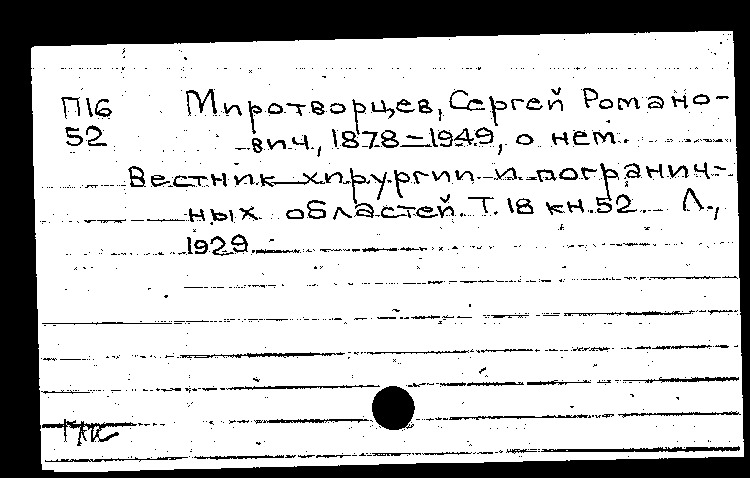 П16 Миротворцев, Сергей Романо-
52 вич, 1878-1949, о нем.
Вестник хирургии и погранич-
ных областей. Т. 18 кн. 52. Л.,
1929.